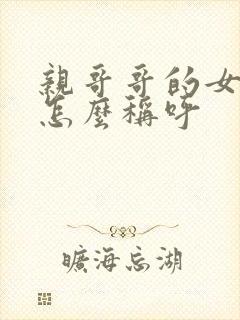 親哥哥的女
怎麼稱呼
曠海忘湖